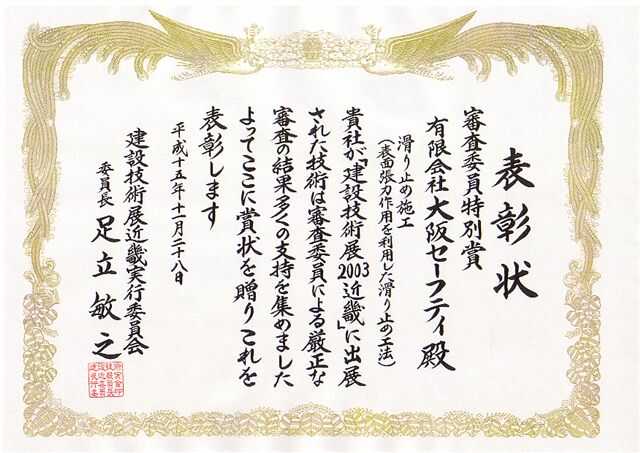 表彰状
審査委員特別賞
有限会社大阪セーフティ殿
滑り止め施工
(表面張力作用を利用した滑り止め工法)
貴社が「建設技術展2003近畿」に出展
された技術は審査委員による厳正な
審査の結果多くの支持を集めました
よってここに賞状を贈りこれを
表彰します
平成十五年十一月二十八日
建設技術展近畿実行委員会
委員長 足立敏之